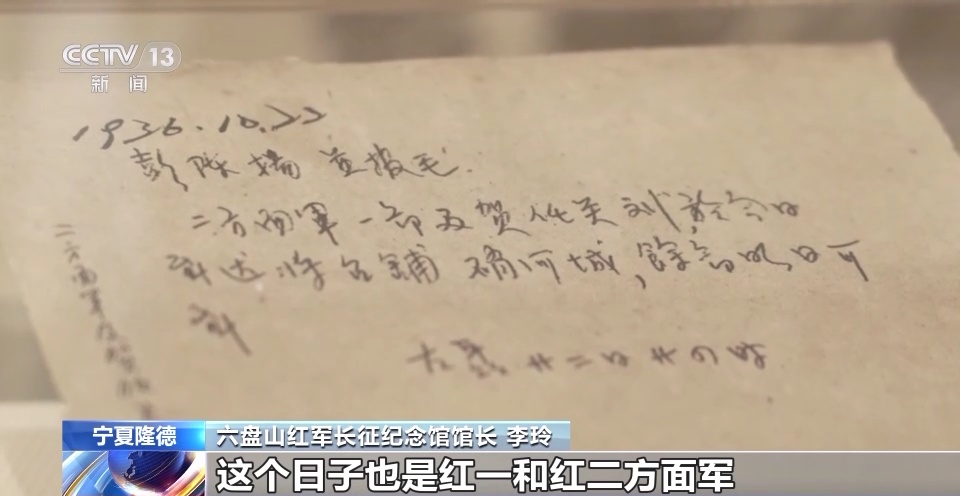 CCTV 13
新闻
1936.10.22
彭陈杨并报毛
二方面军一部及贺任关刘于今日
到达将台铺 硝河城,余部明日可
到
廿二日廿四时
二方面军
宁夏隆德
六盘山红军长征纪念馆馆长 李玲
这个日子也是红一和红二方面军